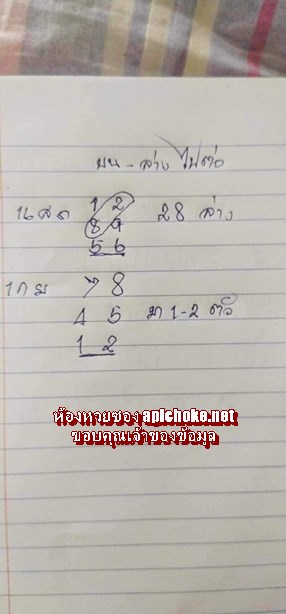 บน - ล่าง ไปต่อ
16 ส ค 1 2 28 ล่าง
8 9
5 6
1 ก ย 7 8
4 5 มา 1-2 ตัว
1 2
ห้องหวยซอง apichoke.net
ขอบคุณเจ้าของข้อมูล